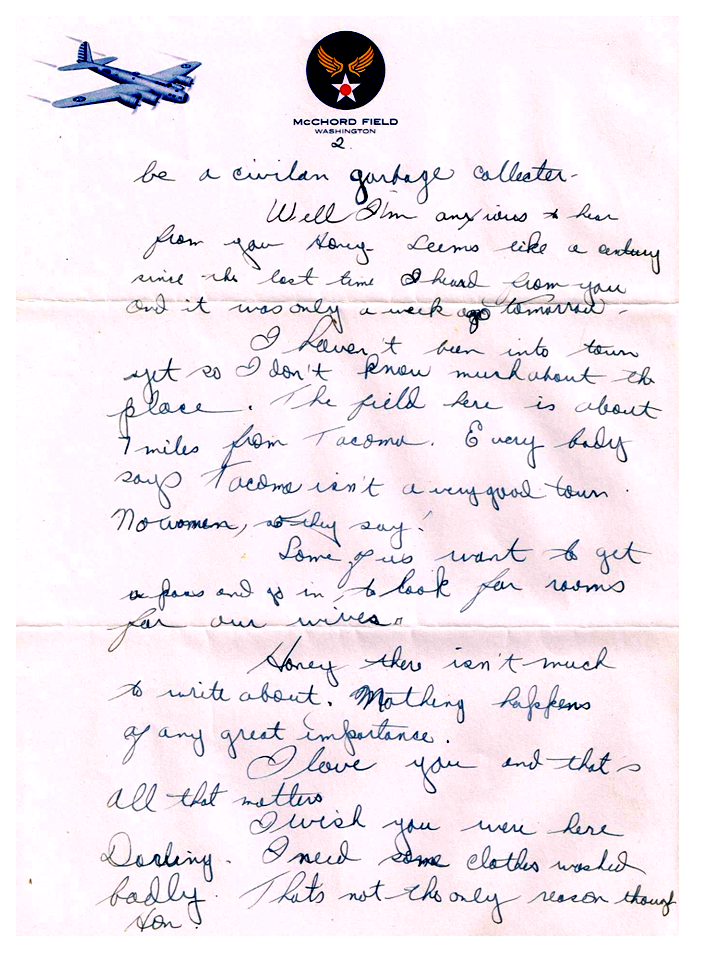 McCHORD FIELD
WASHINGTON
2.
be a civilan garbage collecter-
Well I'm anxious to hear
from you Honey- Seems like a century
since the last time I heard from you
and it was only a week ago tomorrow-
I haven't been into town
yet so I don't know much about the
place. The field here is about
7 miles from Tacoma. Every body
says Tacoma isn't a very good town.
No women, so they say!
Some of us want to get
a pass and go in, to look for rooms
for our wives.
Honey there isn't much
to write about. Nothing happens
of any great importance.
I love you and that's
all that matters
I wish you were here
Darling. I need some clothes washed
badly. Thats not the only reason though
Hon.